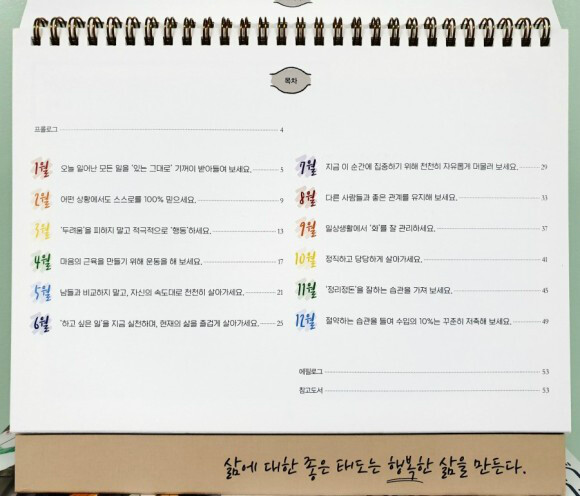 목차
프롤로그 4
1월 오늘 일어난 모든 일을 '있는 그대로' 기꺼이 받아들여 보세요. 5
2월 어떤 상황에서도 스스로를 100% 믿으세요. 9
3월 '두려움'을 피하지 말고 적극적으로 '행동'하세요. 13
4월 마음의 근육을 만들기 위해 운동을 해 보세요. 17
5월 남들과 비교하지 말고, 자신의 속도대로 천천히 살아가세요. 21
6월 '하고 싶은 일'을 지금 실천하며, 현재의 삶을 즐겁게 살아가세요. 25
7월 지금 이 순간에 집중하기 위해 천천히 자유롭게 머물러 보세요. 29
8월 다른 사람들과 좋은 관계를 유지해 보세요. 33
9월 일상생활에서 '화'를 잘 관리하세요. 37
10월 정직하고 당당하게 살아가세요. 41
11월 '정리정돈'을 잘하는 습관을 가져 보세요. 45
12월 절약하는 습관을 들여 수입의 10%는 꾸준히 저축해 보세요. 49
에필로그 53
참고도서 53
삶에 대한 좋은 태도는 행복한 삶을 만든다.